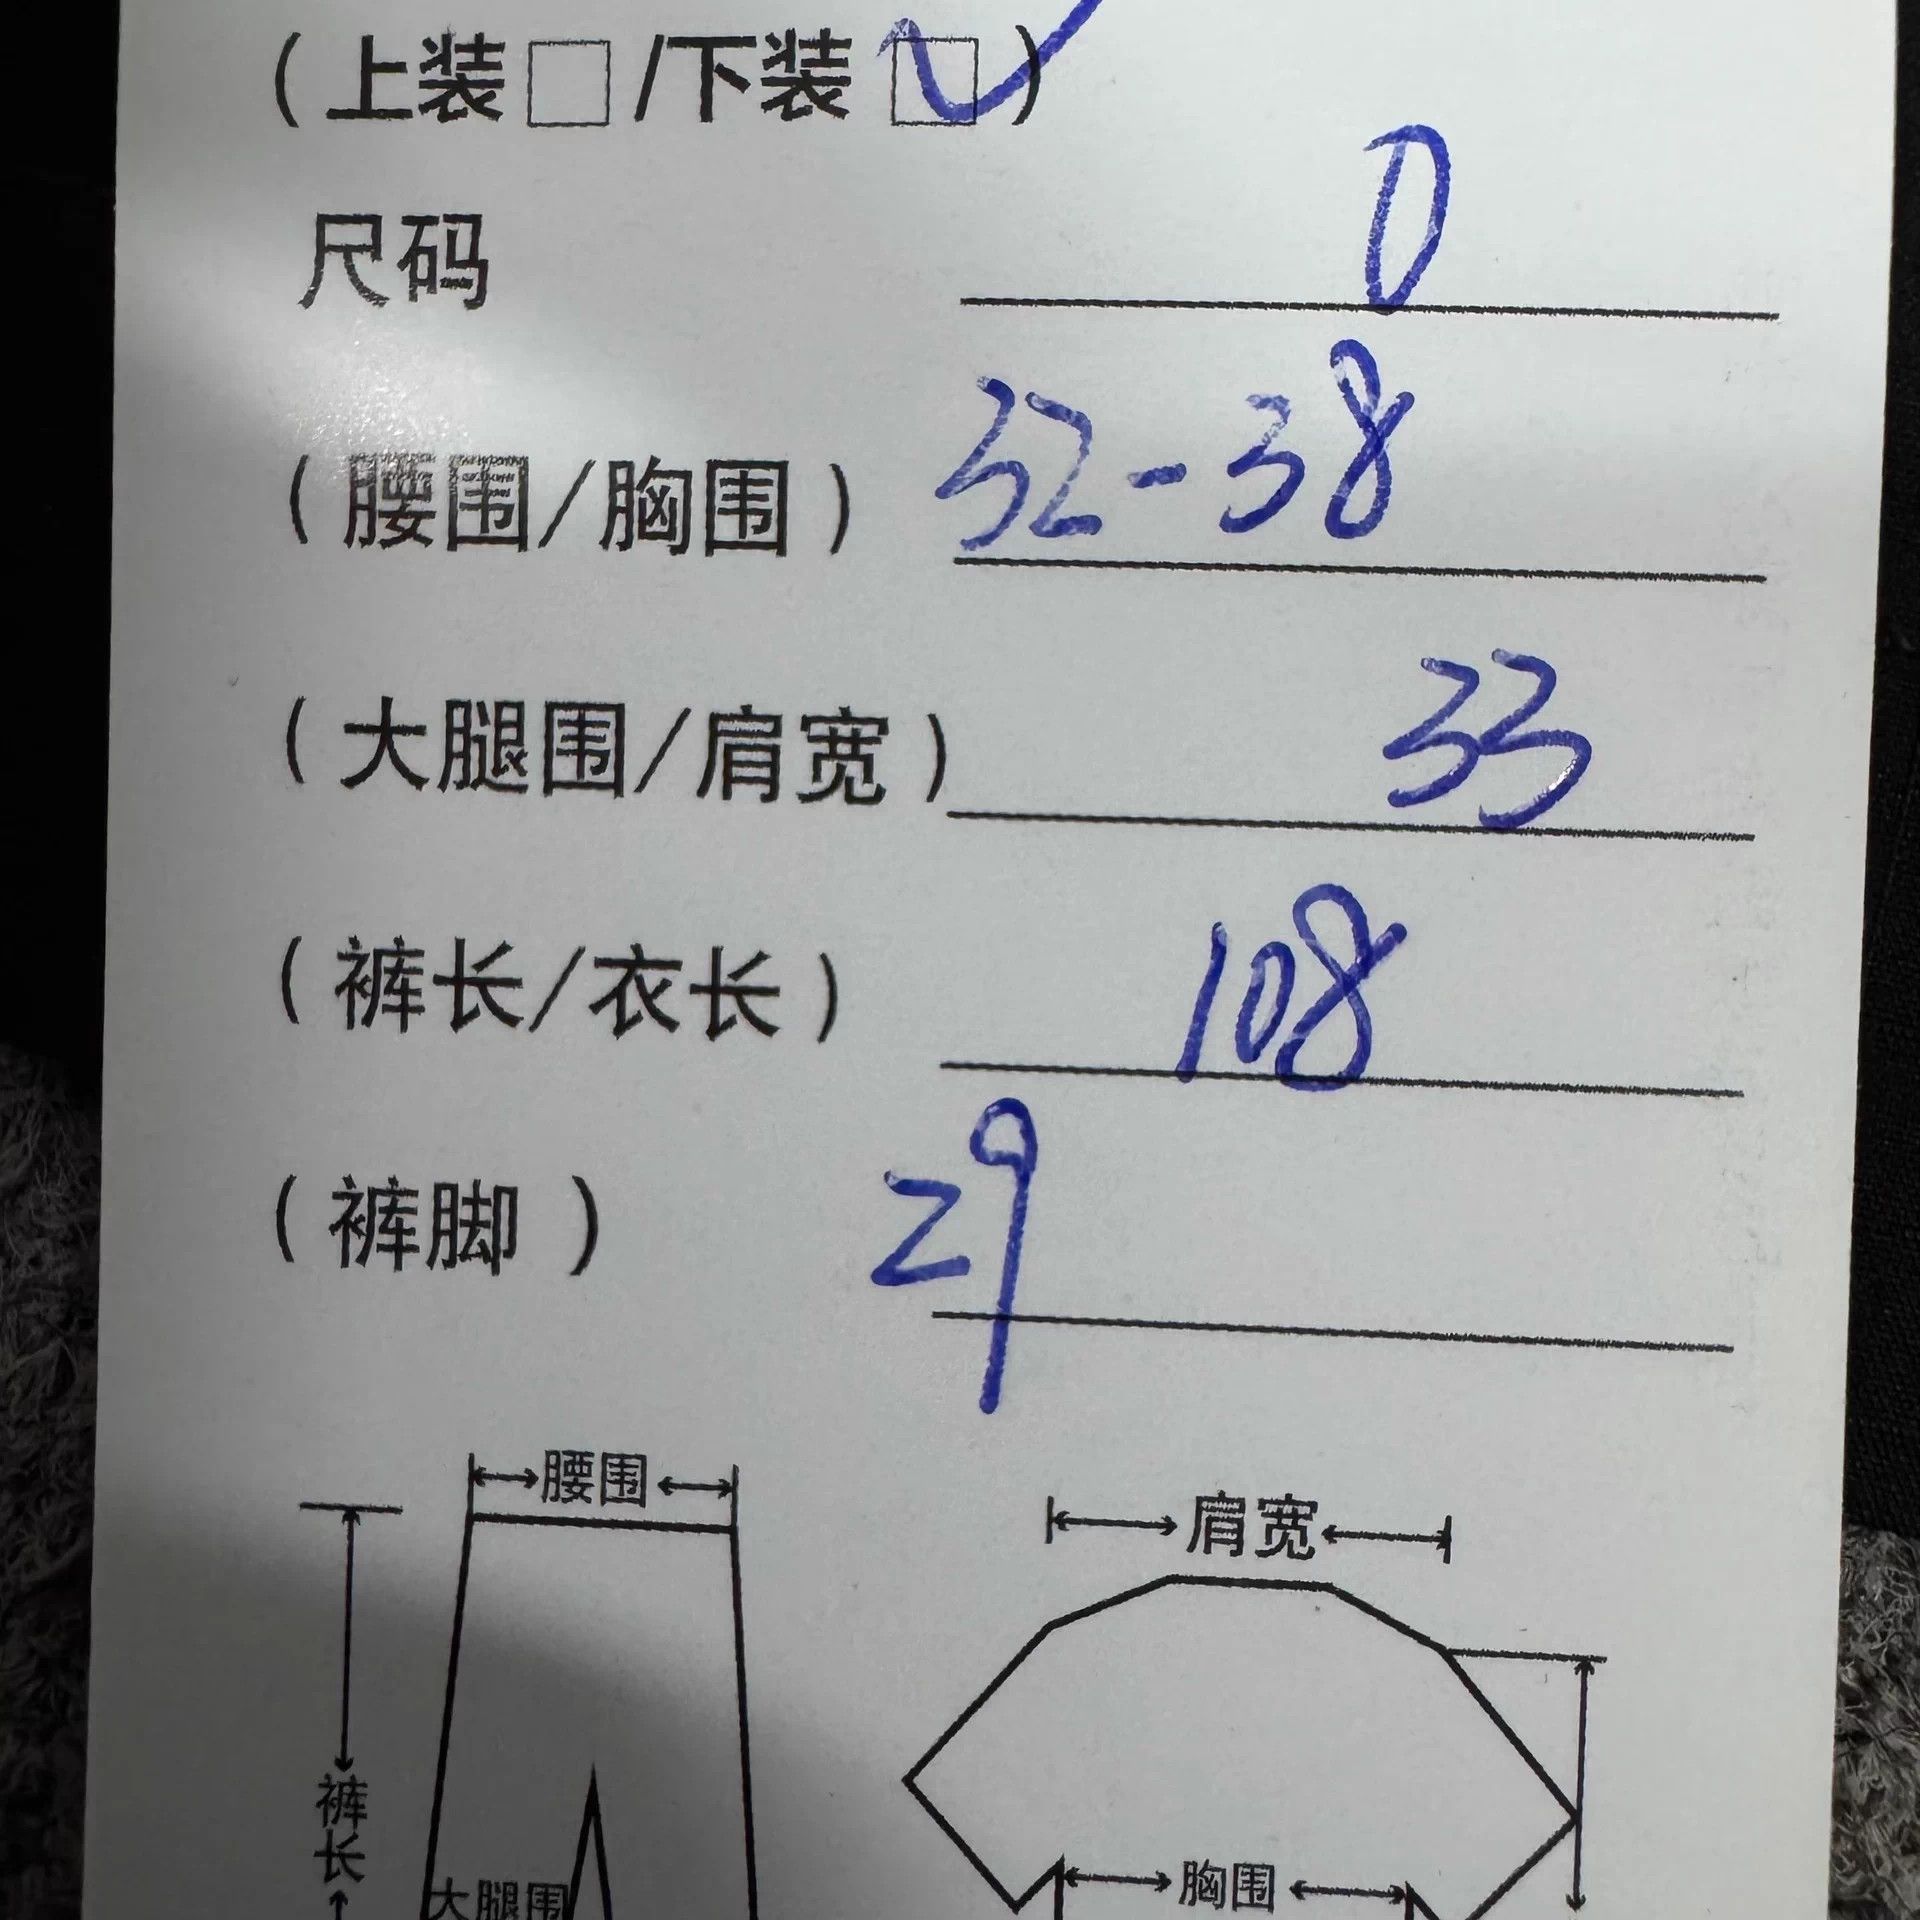 （上装□/下装☑）
尺码 0
（腰围/胸围） 32-38
（大腿围/肩宽） 33
（裤长/衣长） 108
（裤脚 ） 29
腰围
肩宽
裤长
大腿围
胸围